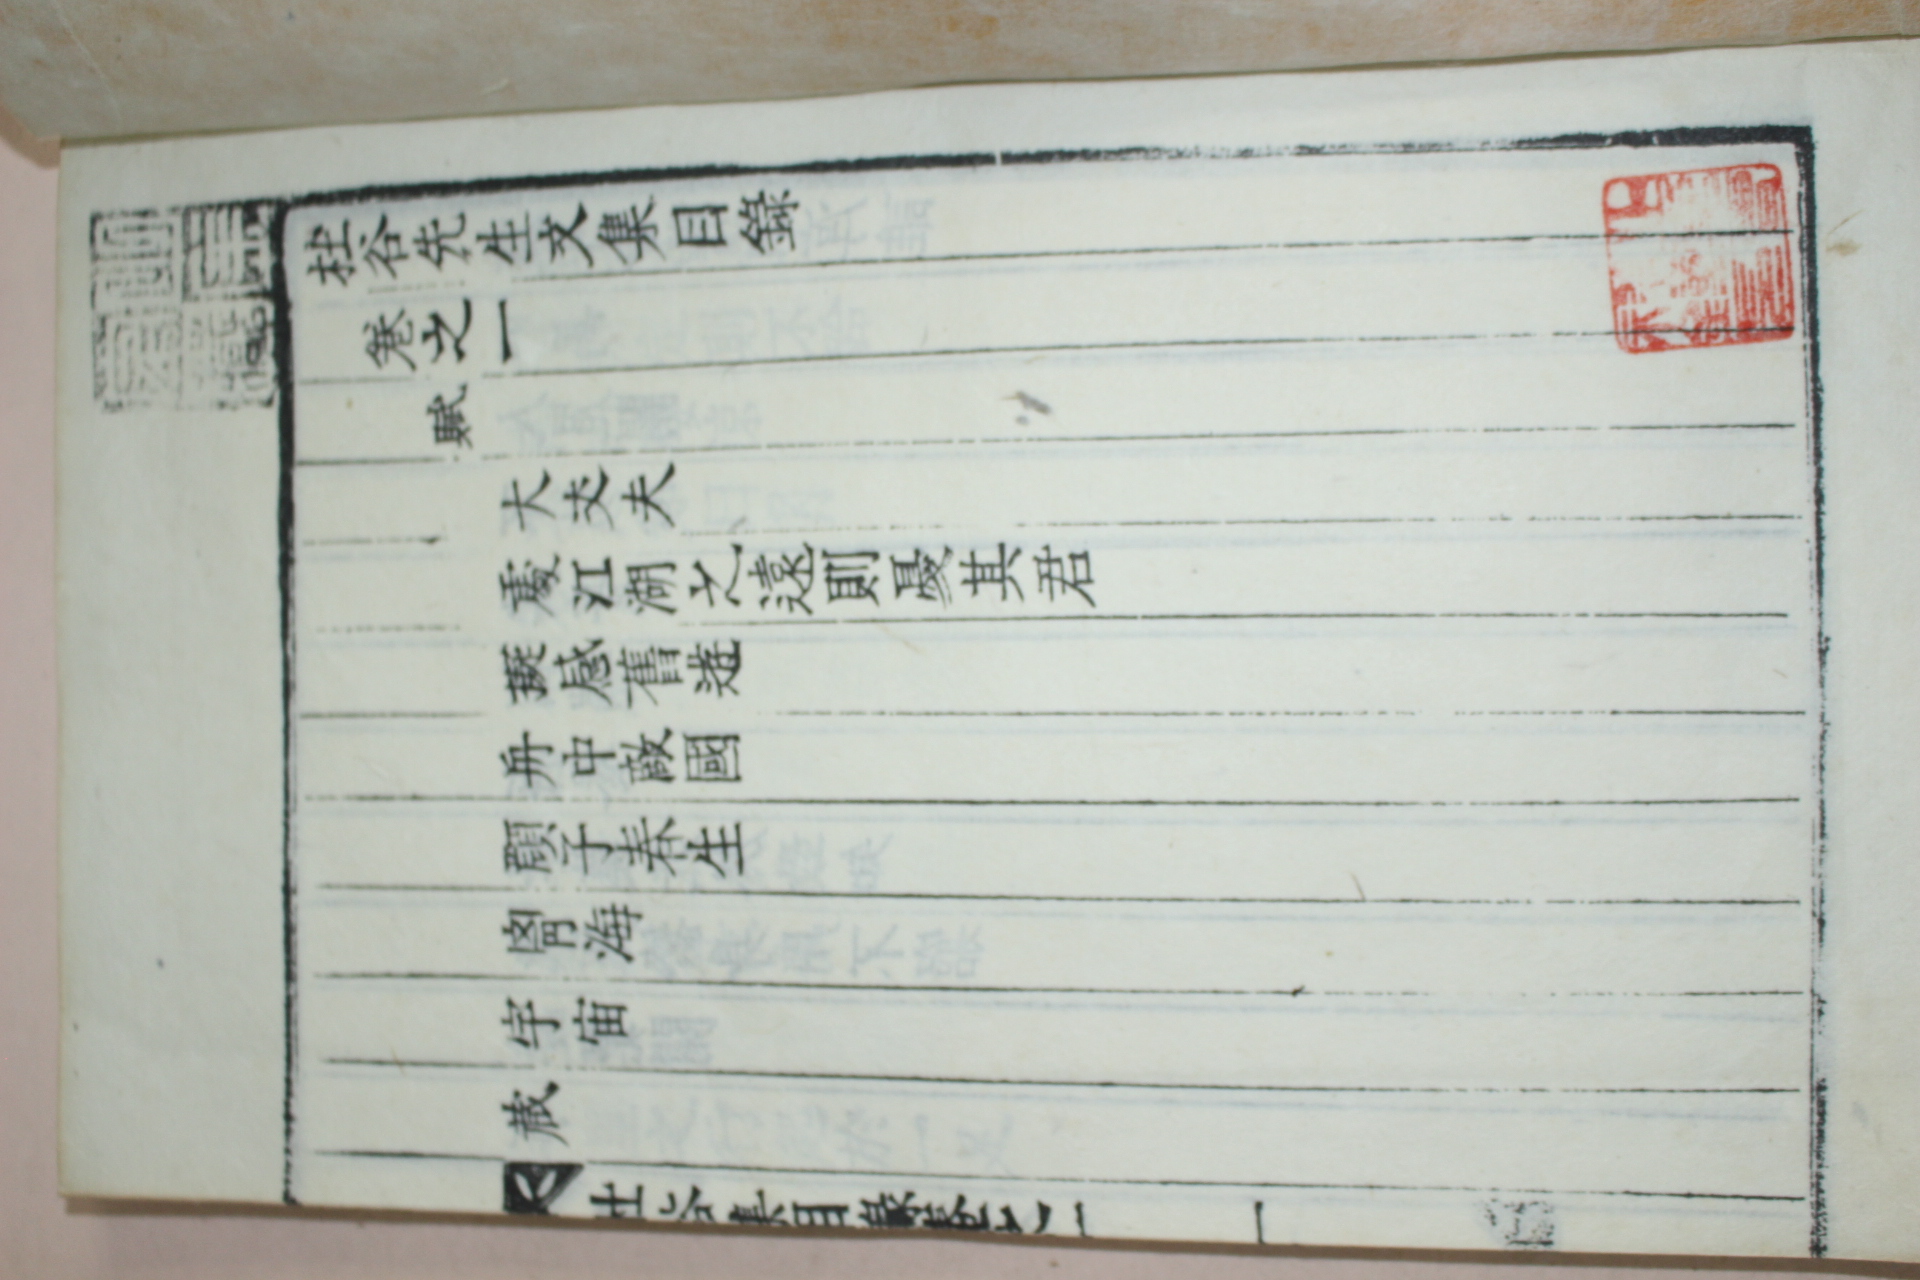 杜谷先生文集目錄
卷之一
賦
大丈夫
處江湖之遠則憂其君
擬感舊遊
舟中敵國
顔子春生
胷海
宇宙
杜谷集目錄卷之一 一